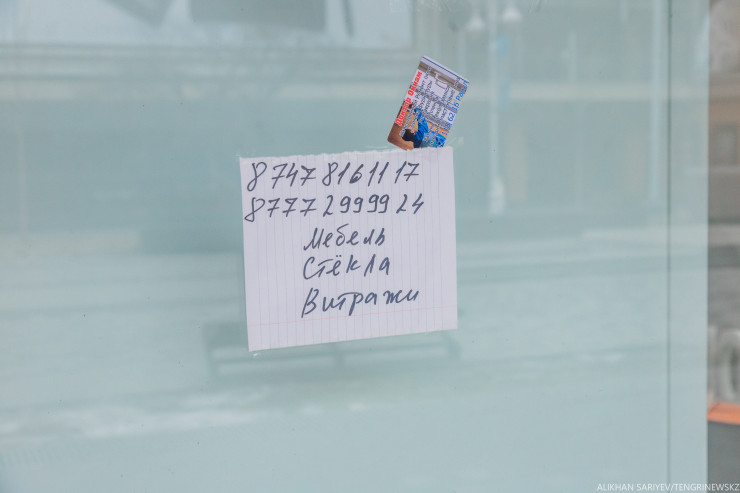 8 747 816 11 17
8777 2 9999 24
Мебель
Стёкла
Витражи
ALIKHAN SARIYEV/TENGRINEWSKZ